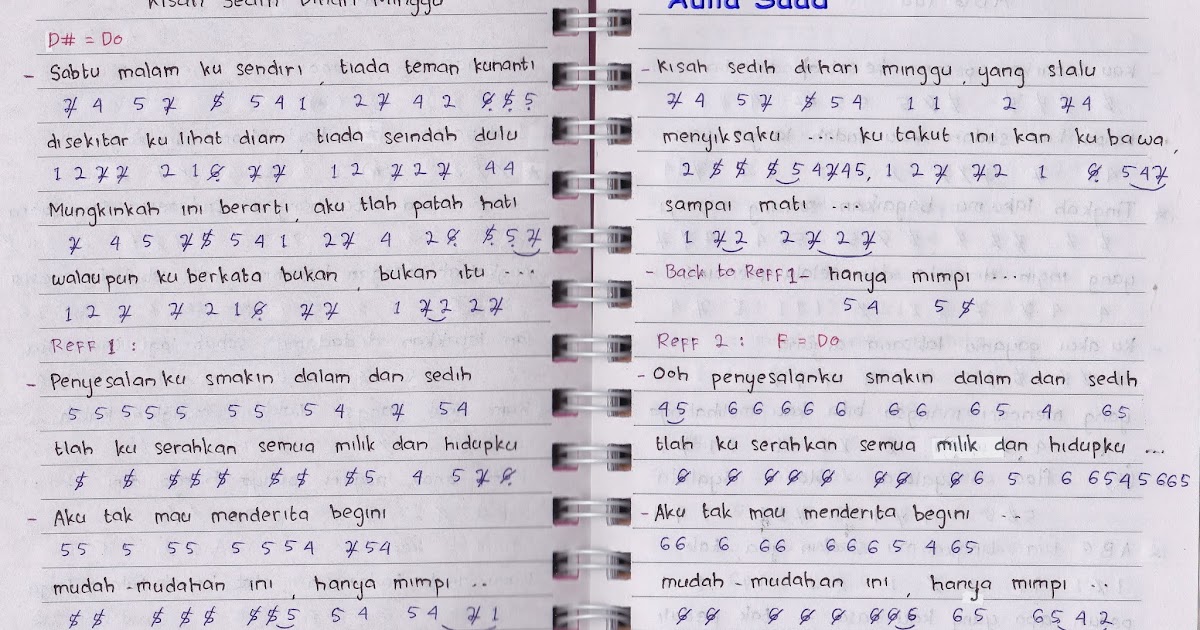 Kisah Sedih Dihari Minggu
D# = Do
- Sabtu malam ku sendiri, tiada teman kunanti
7̸ 4 5 7̸ 5̸ 5 4 1, 2 7̸ 4 2 6̸ 5̸ 5
disekitar ku lihat diam tiada seindah dulu
1 2 7̸ 7̸ 2 1 6̸ 7̸ 7̸ 1 2 7̸ 2 7̸ 4 4
Mungkinkah ini berarti, aku tlah patah hati
7̸ 4 5 7̸ 5̸ 5 4 1 2 7̸ 4 2 6̸ 5̸ 5 7̸
walaupun ku berkata bukan, bukan itu ...
1 2 7̸ 7̸ 2 1 6̸ 7̸ 7̸ 1 7̸ 2 2 7̸
Reff 1 :
- Penyesalanku smakin dalam dan sedih
5 5 5 5 5 5 5 5 4 7̸ 5 4
tlah ku serahkan semua milik dan hidupku
5̸ 5̸ 5̸ 5̸ 5̸ 5̸ 5̸ 5̸ 5 4 5 7̸ 6̸
- Aku tak mau menderita begini
5 5 5 5 5 5 5 5 4 7̸ 5 4
mudah - mudahan ini, hanya mimpi ..
5̸ 5̸ 5̸ 5̸ 5̸ 5̸ 5̸ 5 5 4 5 4 7̸ 1
- Kisah sedih dihari minggu, yang slalu
7̸ 4 5 7̸ 5̸ 5 4 1 1 2 7̸ 4
menyiksaku ... ku takut ini kan ku bawa,
2 5̸ 5̸ 5̸ 5 4 7̸ 4 5, 1 2 7̸ 7̸ 2 1 6̸ 5 4 7̸
sampai mati ...
1 7̸ 2 2 7̸ 2 7̸
- Back to Reff 1 - hanya mimpi ...
5 4 5 5̸
Reff 2 : F = Do
- Ooh penyesalanku smakin dalam dan sedih
4 5 6 6 6 6 6 6 6 6 5 4 6 5
tlah ku serahkan semua milik dan hidupku ...
6̸ 6̸ 6̸ 6̸ 6̸ 6̸ 6̸ 6̸ 6 5 6 6 5 4 5 6 6 5
- Aku tak mau menderita begini ...
6 6 6 6 6 6 6 6 5 4 6 5
mudah - mudahan ini, hanya mimpi ...
6̸ 6̸ 6̸ 6̸ 6̸ 6̸ 6̸ 6 6 5 6 5 4 2